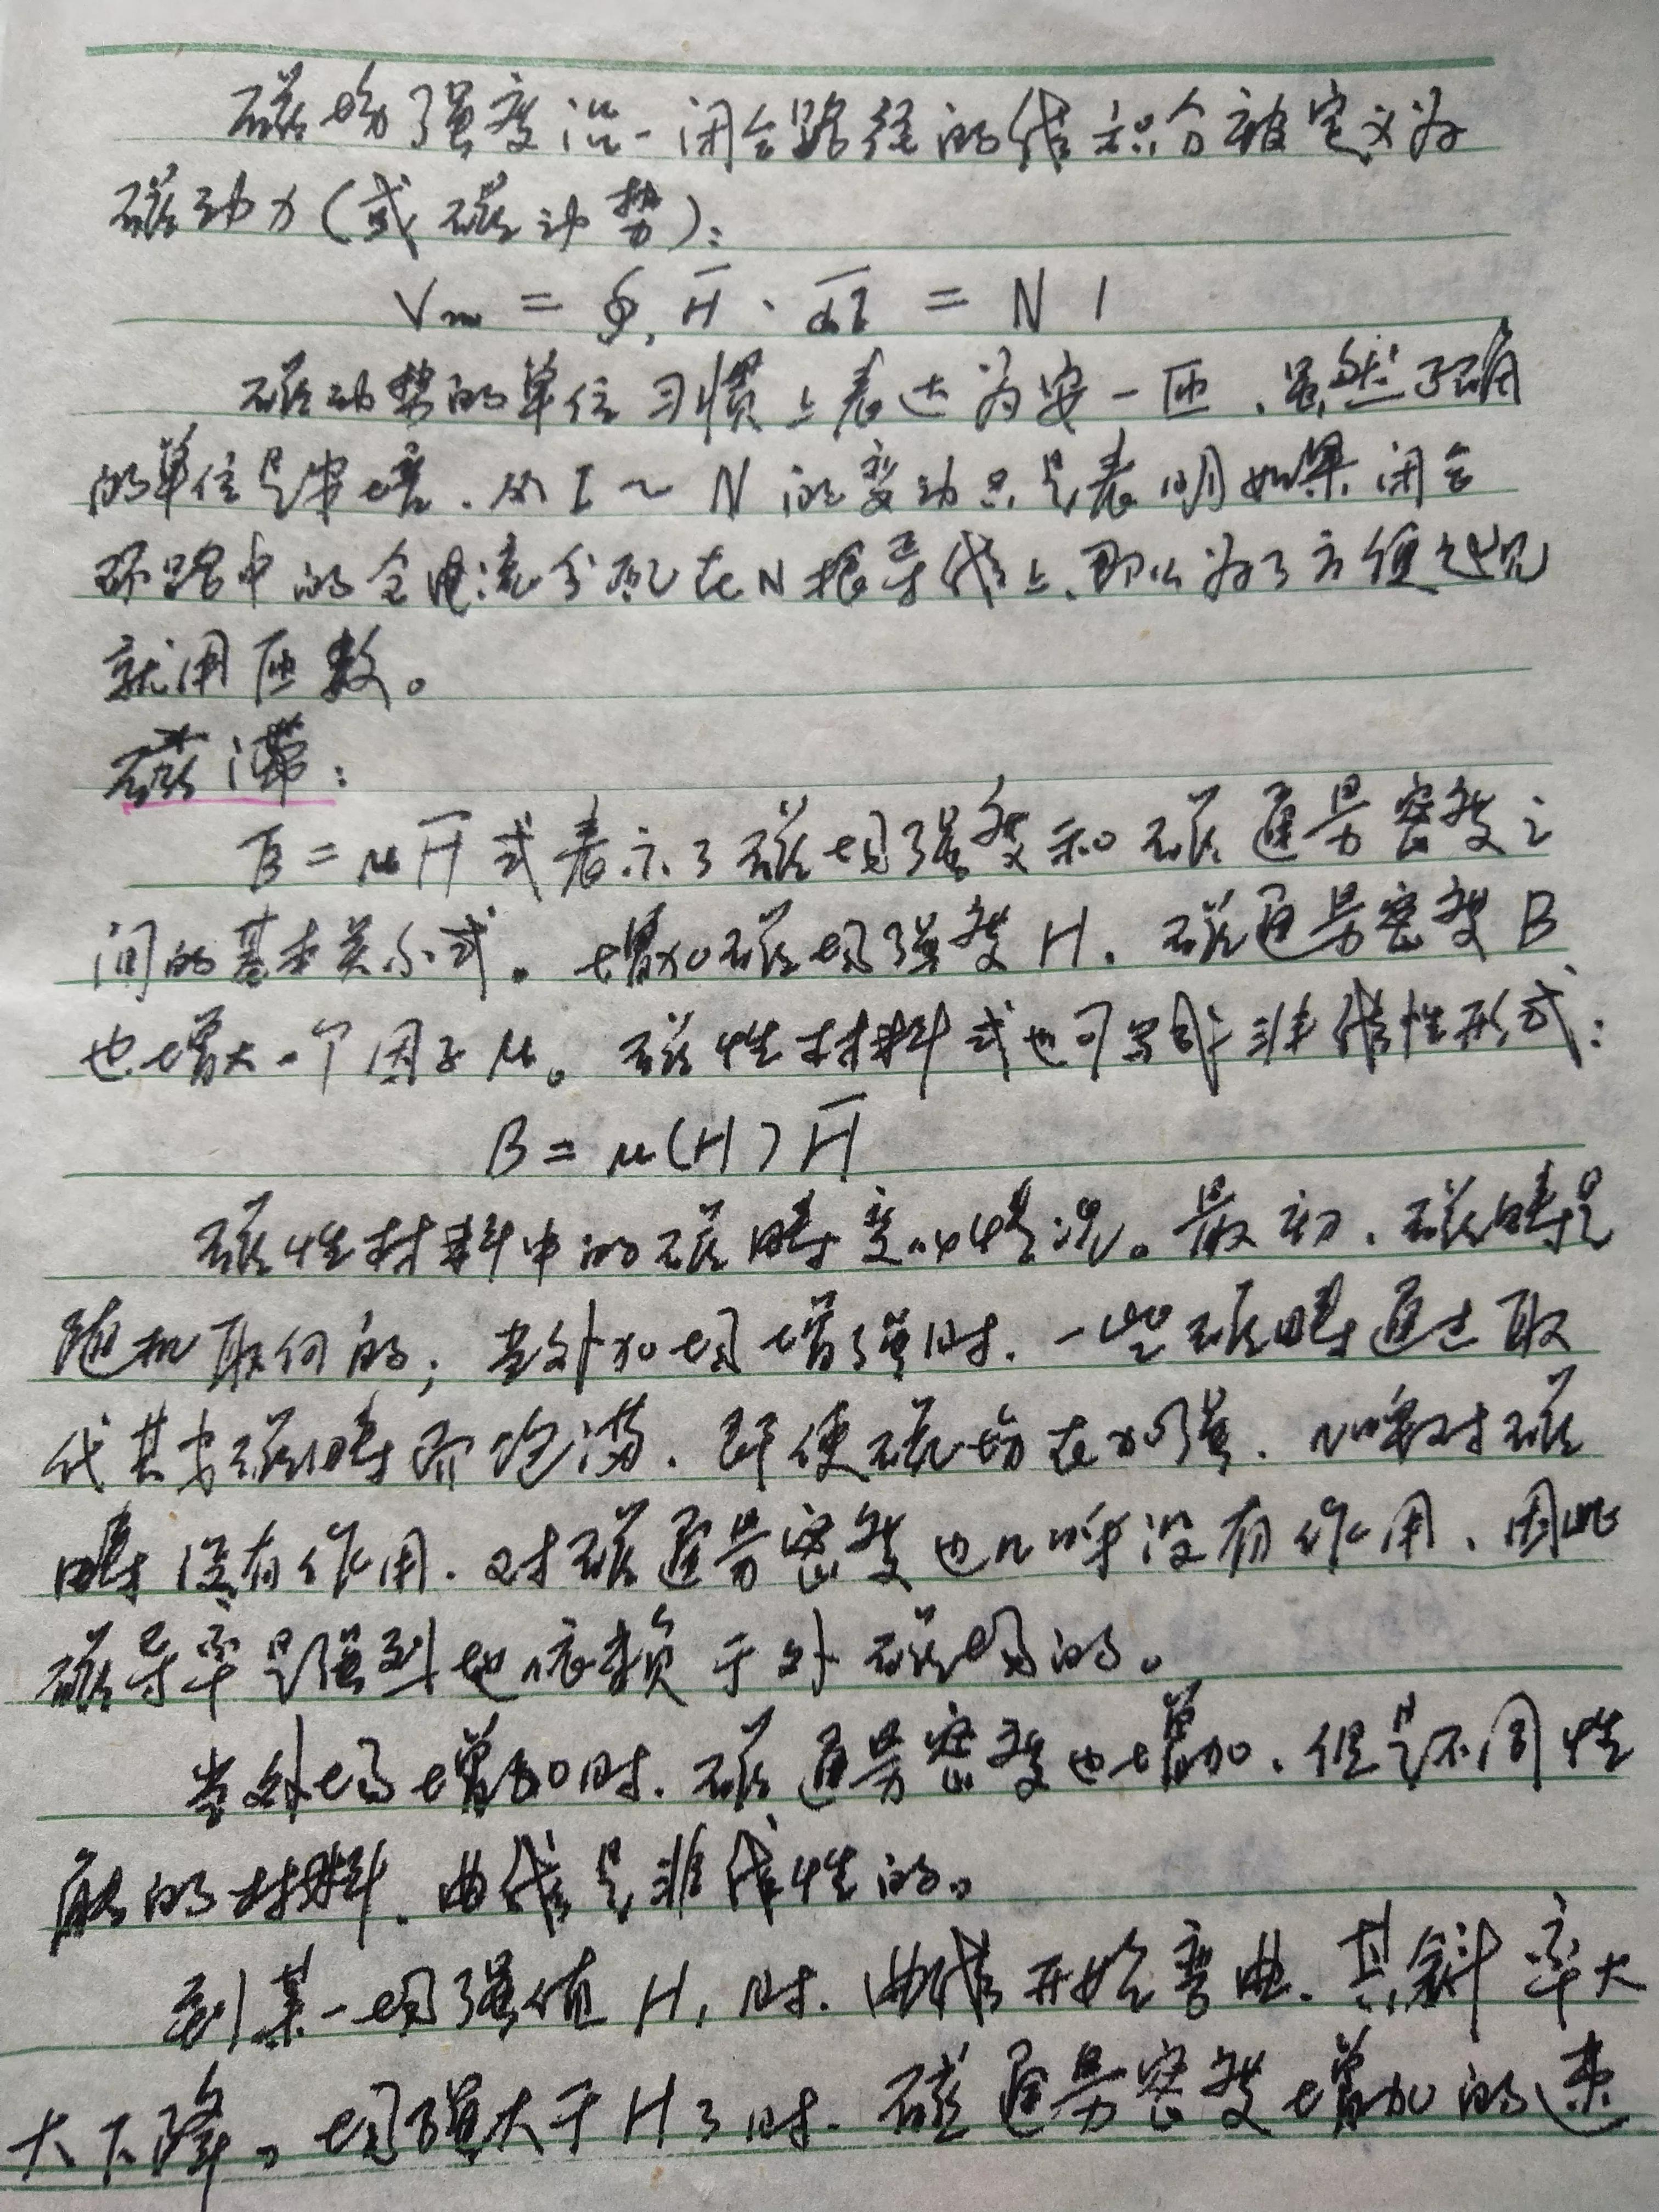 磁场强度沿一闭合路径的线积分被定义为
磁动力(或磁动势):
Vm = ∮, H̅ · d̅l̅ = N I
磁动势的单位习惯上表达为安一匝、虽然正确
的单位是安培、从 I ~ N 的变动只是表明如果闭合
环路中的全电流分配在N根导线上、那么为了方便起见
就用匝数。
磁滞:
B̅ = μH̅ 式表示了磁场强度和磁通量密度之
间的基本关系式。增加磁场强度 H、磁通量密度 B
也增大一个因子 μ。磁性材料式也可写成非线性形式:
B = μ(H) H̅
磁性材料中的磁畴变化情况。最初、磁畴是
随机取向的; 当外加场增强时、一些磁畴通过取
代其它磁畴而饱满、即使磁场在加强、几乎对磁
畴没有作用、对磁通量密度也几乎没有作用、因此
磁导率是强烈地依赖于外磁场的。
当外场增加时、磁通量密度也增加、但是不同性
能的材料、曲线是非线性的。
到某一场强值 H₁ 时、曲线开始弯曲、其斜率大
大下降。场强大于 H3 时、磁通量密度增加的速